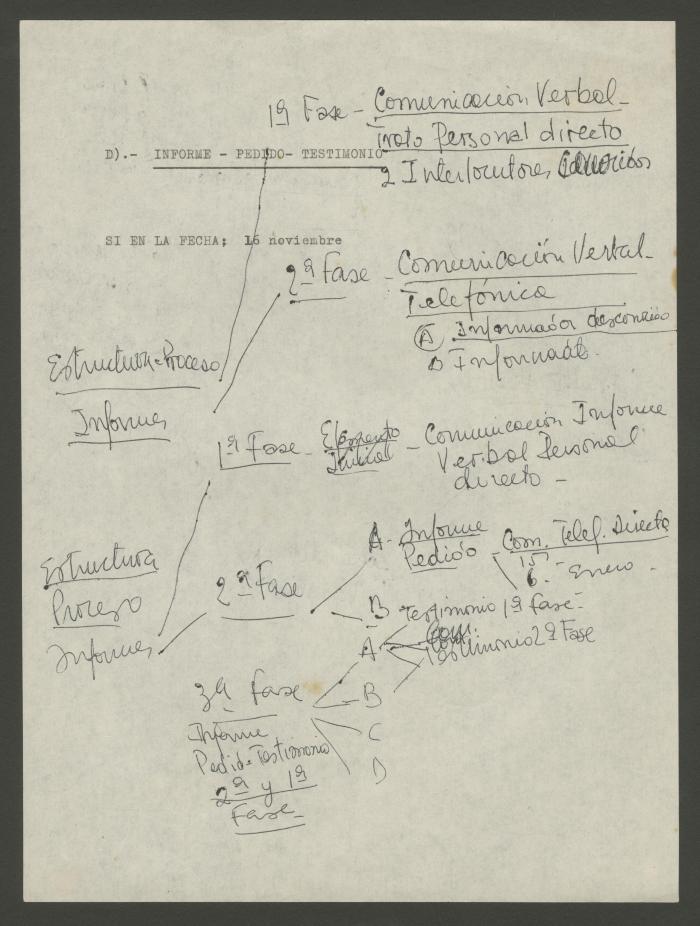 1ª Fase - Comunicación Verbal -
Trato Personal directo
D).- INFORME - PEDIDO- TESTIMONIO
2 Interlocutores
SI EN LA FECHA; 16 noviembre
2ª Fase - Comunicación Verbal -
Telefónica
A Informador desconocido
B Informado.
Estructura-Proceso
Informes
1ª Fase - Elemento Inicial - Comunicación Informe
Verbal Personal
directo -
Estructura
Proceso
Informes
2ª Fase
A - Informe
Pedido - Com. Telef. Directa
15
6 - Enero -
B Testimonio 1ª Fase -
A
Testimonio 2ª Fase
3ª Fase
B
Informe
C
Pedido-Testimonio
D
2ª y 1ª
Fase